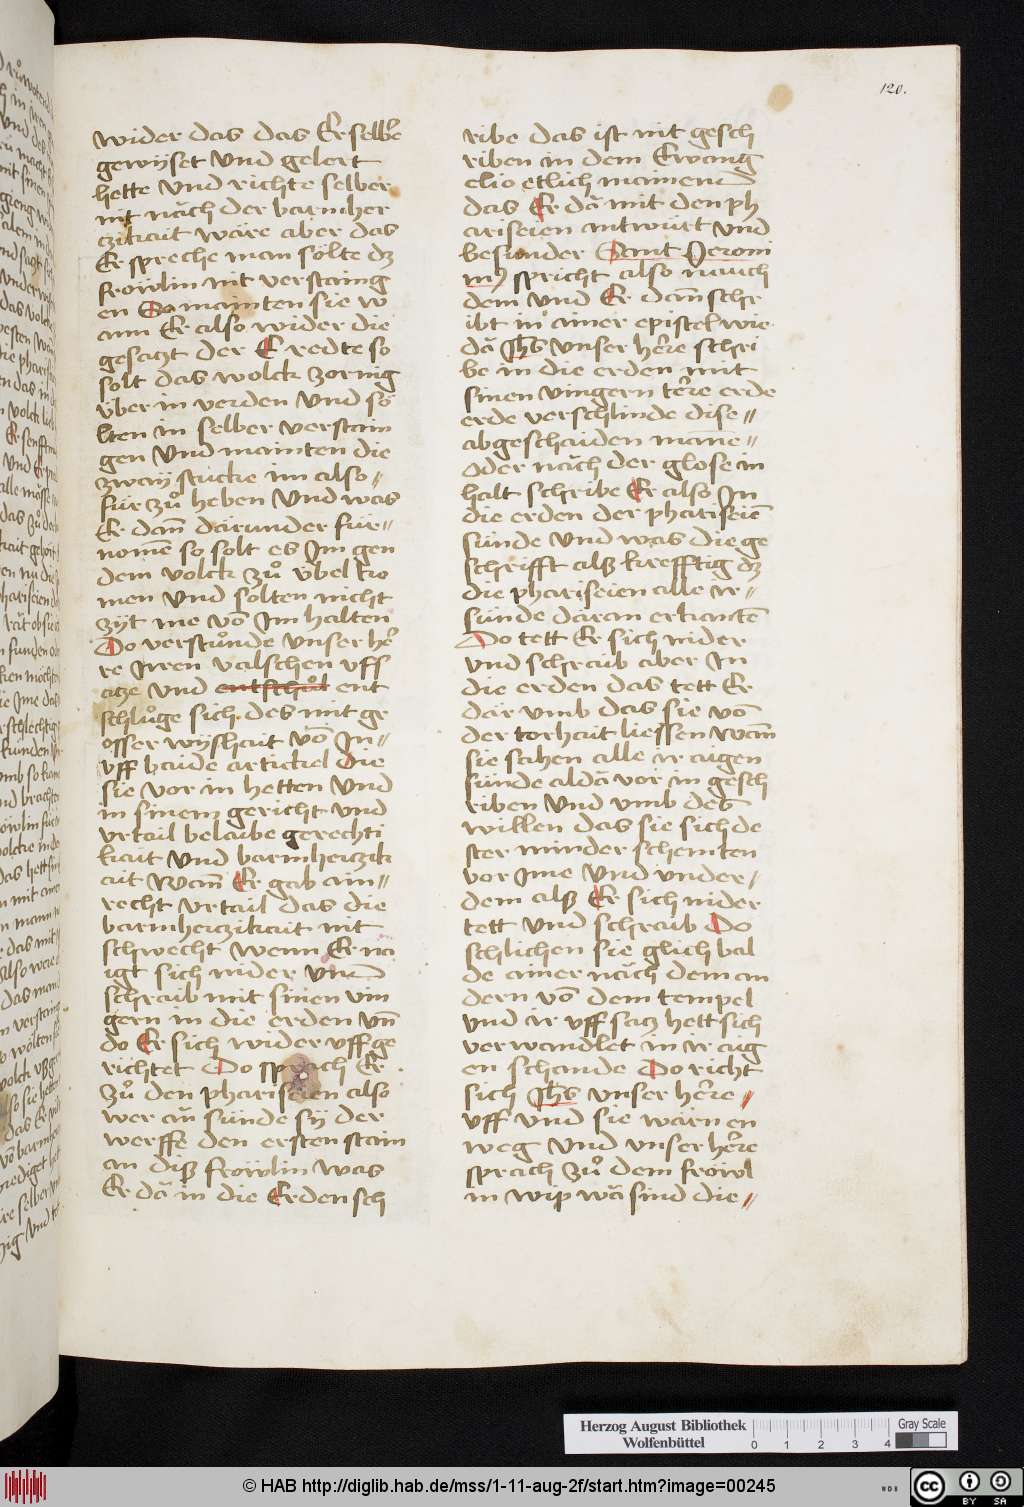 120.
wider das das Er selber
gewÿset vnd gelert
hette vnd richte selber
nit näch der barmher
czikait wäre aber das
Er spreche man sölte dz
fröwlin nit verstaing
en So mainten sie w
ann Er also wider die
gesaczt der Er redte so
solt das wolck zornig
v̈ber in verden vnd sö
lten in selber verstain
gen vnd mainten die
zwaÿ stucke im also〃
für zů heben vnd was
Er dañ därunder für〃
nomē so solt es Im gen
dem volck zů v̈bel ko
men vnd solten nicht
zÿt me vō Im halten
Do verstůnde vnser hẽr
re Iren valschen vff
acze vnd entschůl ent
schlůge sich des mit gr
osser wÿshait vō In〃
vff baide artickel die
sie vor in hetten vnd
in sinem gericht vnd
vrtail belaibe gerechti
kait vnd barmherczik
ait wañ Er gab ain〃
recht vrtail das die
barmherczikait nit
schwecht wenn Er na
igt sich nider vnd
schraib mit sinen vin
gern in die erden vñ
do Er sich wider vff ge
richtet Do sprach Er
zů den phariseien also
wer än sünde sÿ der
werffe den ersten stain
an disz fröwlin was
Er dä in die Erden sch
ribe das ist nit gesch
riben in dem Ewang
elio etlich mainend
das Er dä mit den ph
ariseien antwürt vnd
besunder Sant Jeroni
mꝰ spricht also nauch
dem vnd Er dañ schr
ibt in ainer epistel wie
dä Jhs vnser hẽre schri
be in die erden mit
sinen vingern tẽre erde
erde verschlinde dise〃
abgeschaiden manne〃
oder näch der glose in
halt schribe Er also In
die erden der phariseiē
sünde vnd was die ge
schrifft alsz krefftig dz
die phariseien alle ir〃
sünde daran erkantē
Do tett Er sich nider
vnd schraib aber In
die erden das tett Er
där vmb das sie vō
der torhait liessen wañ
sie sahen alle ir augen
sünde aldä vor in gesch
riben vnd vmb des
willen das sie sich de
ster minder schemten
vor Ime vnd vnder/
dem alsz Er sich nider
tett vnd schraib Do
schlichen sie glich bal
de ainer näch dem an
dern vō dem tempel
vnd ir vff sacz hett sich
verwandlet in ir aig
en schande Do richt
sich Jhs vnser hẽre〃
vff vnd sie wärn en
weg vnd vnser hẽre
sprach zů dem fröwl
in wip wä sind die〃
Herzog August Bibliothek
Wolfenbüttel
0 1 2 3 4
Gray Scale
© HAB http://diglib.hab.de/mss/1-11-aug-2f/start.htm?image=00245
WDB
cc BY SA